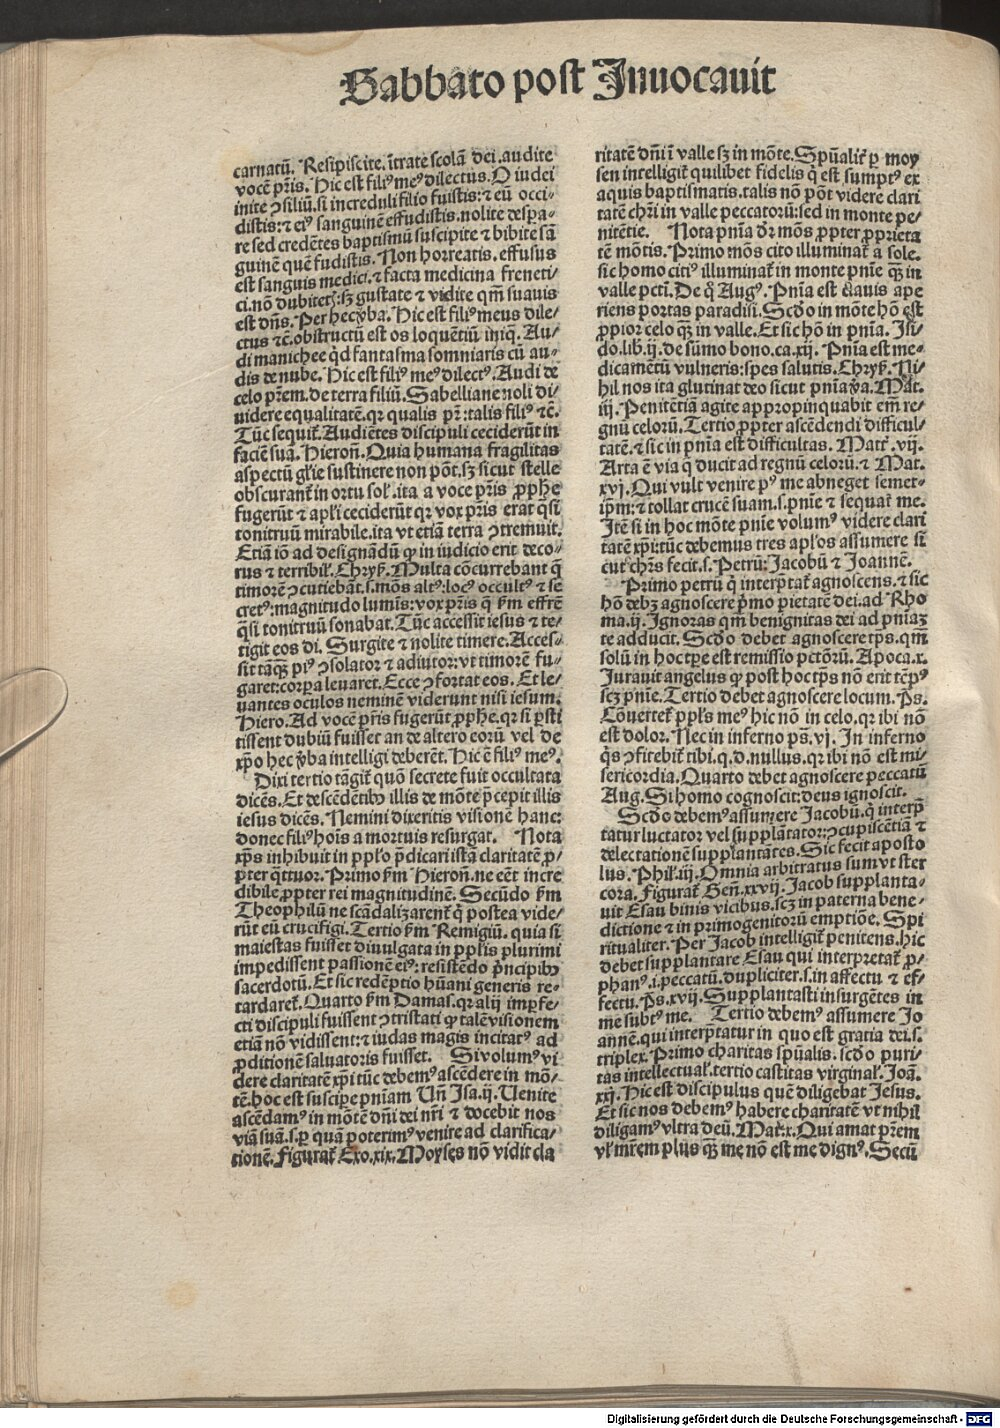 Sabbato post Inuocauit
carnatū. Resipiscite. ītrate scolā dei. audite
vocē pr̄is. Hic est filiꝰ meꝰ dilectus. O iudei
inite ↄsiliū. si increduli filio fuistis: ⁊ eū occi⸗
distis: ⁊ eiꝰ sanguinē effudistis. nolite despa⸗
re sed credētes baptismū suscipite ⁊ bibite sā
guinē quē fudistis. Non horreatis. effusus
est sanguis medici. ⁊ facta medicina freneti⸗
ci. nō dubitetꝭ: sꝫ gustate ⁊ vidite qm̄ suauis
est dn̄s. Per hec ꝟba. Hic est filiꝰ meus dile⸗
ctus ⁊c̄. obstructū est os loquētiū iniq̄. Au⸗
di manichee qͥd fantasma somniaris cū au⸗
dis de nube. Hic est filiꝰ meꝰ dilectꝰ. Audi de
celo pr̄em. de terra filiū. Sabelliane noli di⸗
videre equalitatē. qꝛ qualis pr̄: talis filiꝰ ⁊c̄.
Tūc sequit̄. Audiētes discipuli ceciderūt in
faciē suā. Hieron̄. Quia humana fragilitas
aspectū gl̄ie sustinere non pōt. sꝫ sicut stelle
obscurant̄ in ortu sol̄. ita a voce pr̄is ꝓph̄e
fugerūt ⁊ apl̄i ceciderūt qꝛ vox pr̄is erat q̄si
tonitruū mirabile. ita vt etiā terra ↄtremuit.
Etiā iō ad designādū ꝙ in iudicio erit deco⸗
rus ⁊ terribil̄. Chryſ. Multa cōcurrebant q̄
timorē ↄcutiebāt. s. mōs altꝰ: locꝰ occultꝰ ⁊ se
cretꝰ: magnitudo lumīs: vox pr̄is q̄ ẜm effrē
q̄si tonitruū sonabat. Tūc accessit iesus ⁊ te⸗
tigit eos di. Surgite ⁊ nolite timere. Acces⸗
sit tāqꝫ piꝰ ↄsolator ⁊ adiutor: vt timorē fu⸗
garet: corpora leuaret. Ecce ↄfortat eos. Et le⸗
uantes oculos neminē viderunt nisi iesum.
Hiero. Ad vocē pr̄is fugerūt ꝓph̄e. qꝛ si ꝑsti
tissent dubiū fuisset an de altero eorū vel de
xp̄o hec ꝟba intelligi deberēt. Hic ē filiꝰ meꝰ.
Dixi tertio tāgit̄ quō secrete fuit occultata
dicēs. Et descēdētibꝰ illis de mōte p̄cepit illis
iesus dicēs. Nemini dixeritis visionē hanc:
donec filiꝰ hoīs a mortuis resurgat. Nota
xp̄s inhibuit in pp̄l̄o p̄dicari istā claritatē ꝓ⸗
pter q̄ttuor. Primo ẜm Hieron̄. ne eēt incre
dibile ꝓpter rei magnitudinē. Secūdo ẜm
Theophilū ne scādalizarent̄ qͥ postea vide⸗
rūt eū crucifigi. Tertio ẜm Remigiū. quia si
maiestas fuisset diuulgata in pp̄lis plurimi
impedissent passionē eiꝰ: resistēdo p̄ncipibꝰ
sacerdotū. Et sic redēptio hūani generis re⸗
tardaret̄. Quarto ẜm Damas. qꝛ alij imꝑfe⸗
cti discipuli fuissent ↄtristati ꝙ talē visionem
etiā nō vidissent: ⁊ iudas magis incitatꝰ ad
ꝓditionē saluatoris fuisset. Si volumꝰ vi
dere claritatē xp̄i tūc debemꝰ ascēdere in mō⸗
tē. hoc est suscipe pn̄iam Un̄ Isa. ij. Uenite
ascēdamꝰ in mōtē dn̄i dei nr̄i ⁊ docebit nos
viā suā. s. ꝑ quā poterimꝰ venire ad clarifica⸗
tionē. Figurat̄ Exo. xix. Moyses nō vidit cla
ritatē dn̄i ī valle sꝫ in mōte. Spūalit̄ ꝑ moy
sen intelligit̄ quilibet fidelis qͥ est sumptꝰ ex
aquis baptismatis. talis nō pōt videre clari
tatē chr̄i in valle peccatorū: sed in monte pe⸗
nitētie. Nota pn̄ia dr̄ mōs ꝓpter ꝓprieta
tē mōtis. Primo mōs cito illuminat̄ a sole.
sic homo citiꝰ illuminat̄ in monte pn̄ie qꝫ in
valle pctī. De q̄ Augꝰ. Pn̄ia est clauis ape
riens portas paradisi. Scd̄o in mōte hō est
ꝓpior celo qꝫ in valle. Et sic hō in pn̄ia. Isi⸗
do. lib. ij. de sūmo bono. ca. xij. Pn̄ia est me⸗
dicamētū vulneris: spes salutis. Chryſ. Ni⸗
hil nos ita glutinat deo sicut pn̄ia ꝟa. Mat.
iij. Penitētiā agite appropinquabit em̄ re⸗
gnū celorū. Tertio ꝓpter ascēdendi difficul⸗
tatē. ⁊ sic in pn̄ia est difficultas. Matt̄. vij.
Arta ē via q̄ ducit ad regnū celorū. ⁊ Mat.
xvj. Qui vult venire pꝰ me abneget semet⸗
ip̄m: ⁊ tollat crucē suam. s. pn̄ie ⁊ sequat̄ me.
Itē si in hoc mōte pn̄ie volumꝰ videre clari
tatē xp̄i: tūc debemus tres apl̄os assumere si
cut chr̄s fecit. s. Petrū: Jacobū ⁊ Joannē.
Primo petrū qͥ interp̄tat̄ agnoscens. ⁊ sic
hō debꝫ agnoscere p̄mo pietatē dei. ad Rho
ma. ij. Ignoras qm̄ benignitas dei ad pn̄iaꝫ
te adducit. Scd̄o debet agnoscere tp̄s. qm̄
solū in hoc tꝑe est remissio pctōrū. Apoca. x.
Jurauit angelus ꝙ post hoc tp̄s nō erit tēpꝰ
scꝫ pn̄ie. Tertio debet agnoscere locum. Ps.
Cōuertet̄ pp̄ls meꝰ hic nō in celo. qꝛ ibi nō
est dolor. Nec in inferno ps. vj. In inferno
q̄s ↄfitebit̄ tibi. q. d. nullus. qꝛ ibi nō est mi⸗
sericordia. Quarto debet agnoscere peccatū
Aug. Si homo cognoscit: deus ignoscit.
Scd̄o debemꝰ assumere Jacobū. qͥ interp̄
tatur luctator vel supplātator: ↄcupiscētiā ⁊
delectationē supplantātes. Sic fecit aposto
lus. Phil̄. iij. Omnia arbitratus sum vt ster
cora. Figurat̄ Gen̄. xxvij. Jacob supplanta⸗
uit Esau binis vicibus. scꝫ in paterna bene⸗
dictione ⁊ in primogenitorū emptiōe. Spi
ritualiter. Per Jacob intelligit̄ penitens. hic
debet supplantare Esau qui interpretat̄ ꝓ⸗
phanꝰ. i. peccatū. dupliciter. s. in affectu ⁊ ef⸗
fectu. Ps. xvij. Supplantasti insurgētes in
me subtꝰ me. Tertio debemꝰ assumere Jo
annē. qui interp̄tatur in quo est gratia dei. s.
triplex. Primo charitas spūalis. scd̄o puri⸗
tas intellectual̄. tertio castitas virginal̄. Joā.
xxj. Hic est discipulus quē diligebat Jesus.
Et sic nos debemꝰ habere charitatē vt nihil
diligamꝰ vltra deū. Mat. x. Qui amat pr̄em
vl̓ mr̄em plus qꝫ me nō est me dignꝰ. Secū
Digitalisierung gefördert durch die Deutsche Forschungsgemeinschaft - DFG